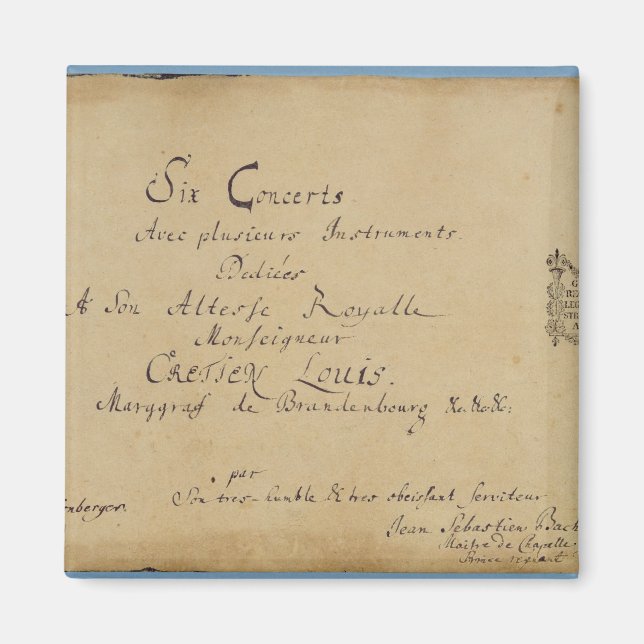 Six Concerts
Avec plusieurs Instruments.
Dediées
A Son Altesse Royalle
Monseigneur
CRETIEN Louis.
Marggraf de Brandenbourg &c.&c.&c:
par
Son tres-humble & tres obeissant serviteur
nberger.
Jean Sebastien Bach
Maitre de Chapelle
Prince regnant
G
RE
LEG
STR
A